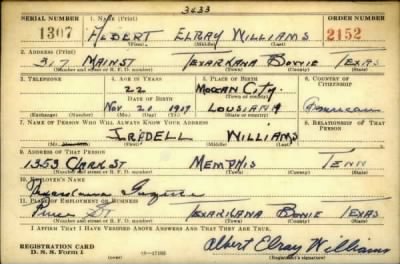 3433
SERIAL NUMBER 1. NAME (Print) ORDER NUMBER
1307 ALBERT ELRAY WILLIAMS 2152
(First) (Middle) (Last)
2. ADDRESS (Print)
317 MAIN ST TEXARKANA BOWIE TEXAS
(Number and street or R. F. D. number) (Town) (County) (State)
3. TELEPHONE 4. AGE IN YEARS 5. PLACE OF BIRTH 6. COUNTRY OF CITIZENSHIP
22 CITY
DATE OF BIRTH (Town or county)
Nov 21 1917 LOUSIANA
(Exchange) (Number) (Mo.) (Day) (Yr.) (State or country)
7. NAME OF PERSON WHO WILL ALWAYS KNOW YOUR ADDRESS 8. RELATIONSHIP OF THAT PERSON
IREDELL WILLIAMS
(First) (Middle) (Last)
9. ADDRESS OF THAT PERSON
1353 CLARK ST MEMPHIS TENN
(Number and street or R. F. D. number) (Town) (County) (State)
10. EMPLOYER'S NAME
Texarkana Gazette
11. PLACE OF EMPLOYMENT OR BUSINESS
Pine ST TEXARKANA BOWIE TEXAS
(Number and street or R. F. D. number) (Town) (County) (State)
I AFFIRM THAT I HAVE VERIFIED ABOVE ANSWERS AND THAT THEY ARE TRUE.
REGISTRATION CARD
D. S. S. Form 1
Albert Elray Williams
(Registrant's signature)